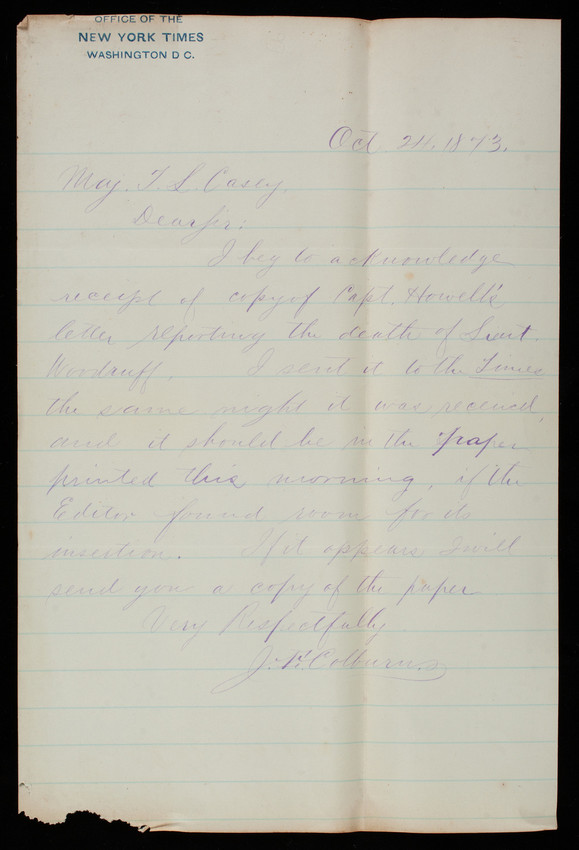 OFFICE OF THE
NEW YORK TIMES
WASHINGTON D C.
Oct. 24. 1873.
Maj. T. L. Casey.
Dear Sir:
I beg to acknowledge
receipt of copy of Capt. Howell's
letter reporting the death of Lieut.
Woodruff. I sent it to the Times
the same night it was received,
and it should be in the paper
printed this morning, if the
Editor found room for its
insertion. If it appears I will
send you a copy of the paper
Very Respectfully
Colburn